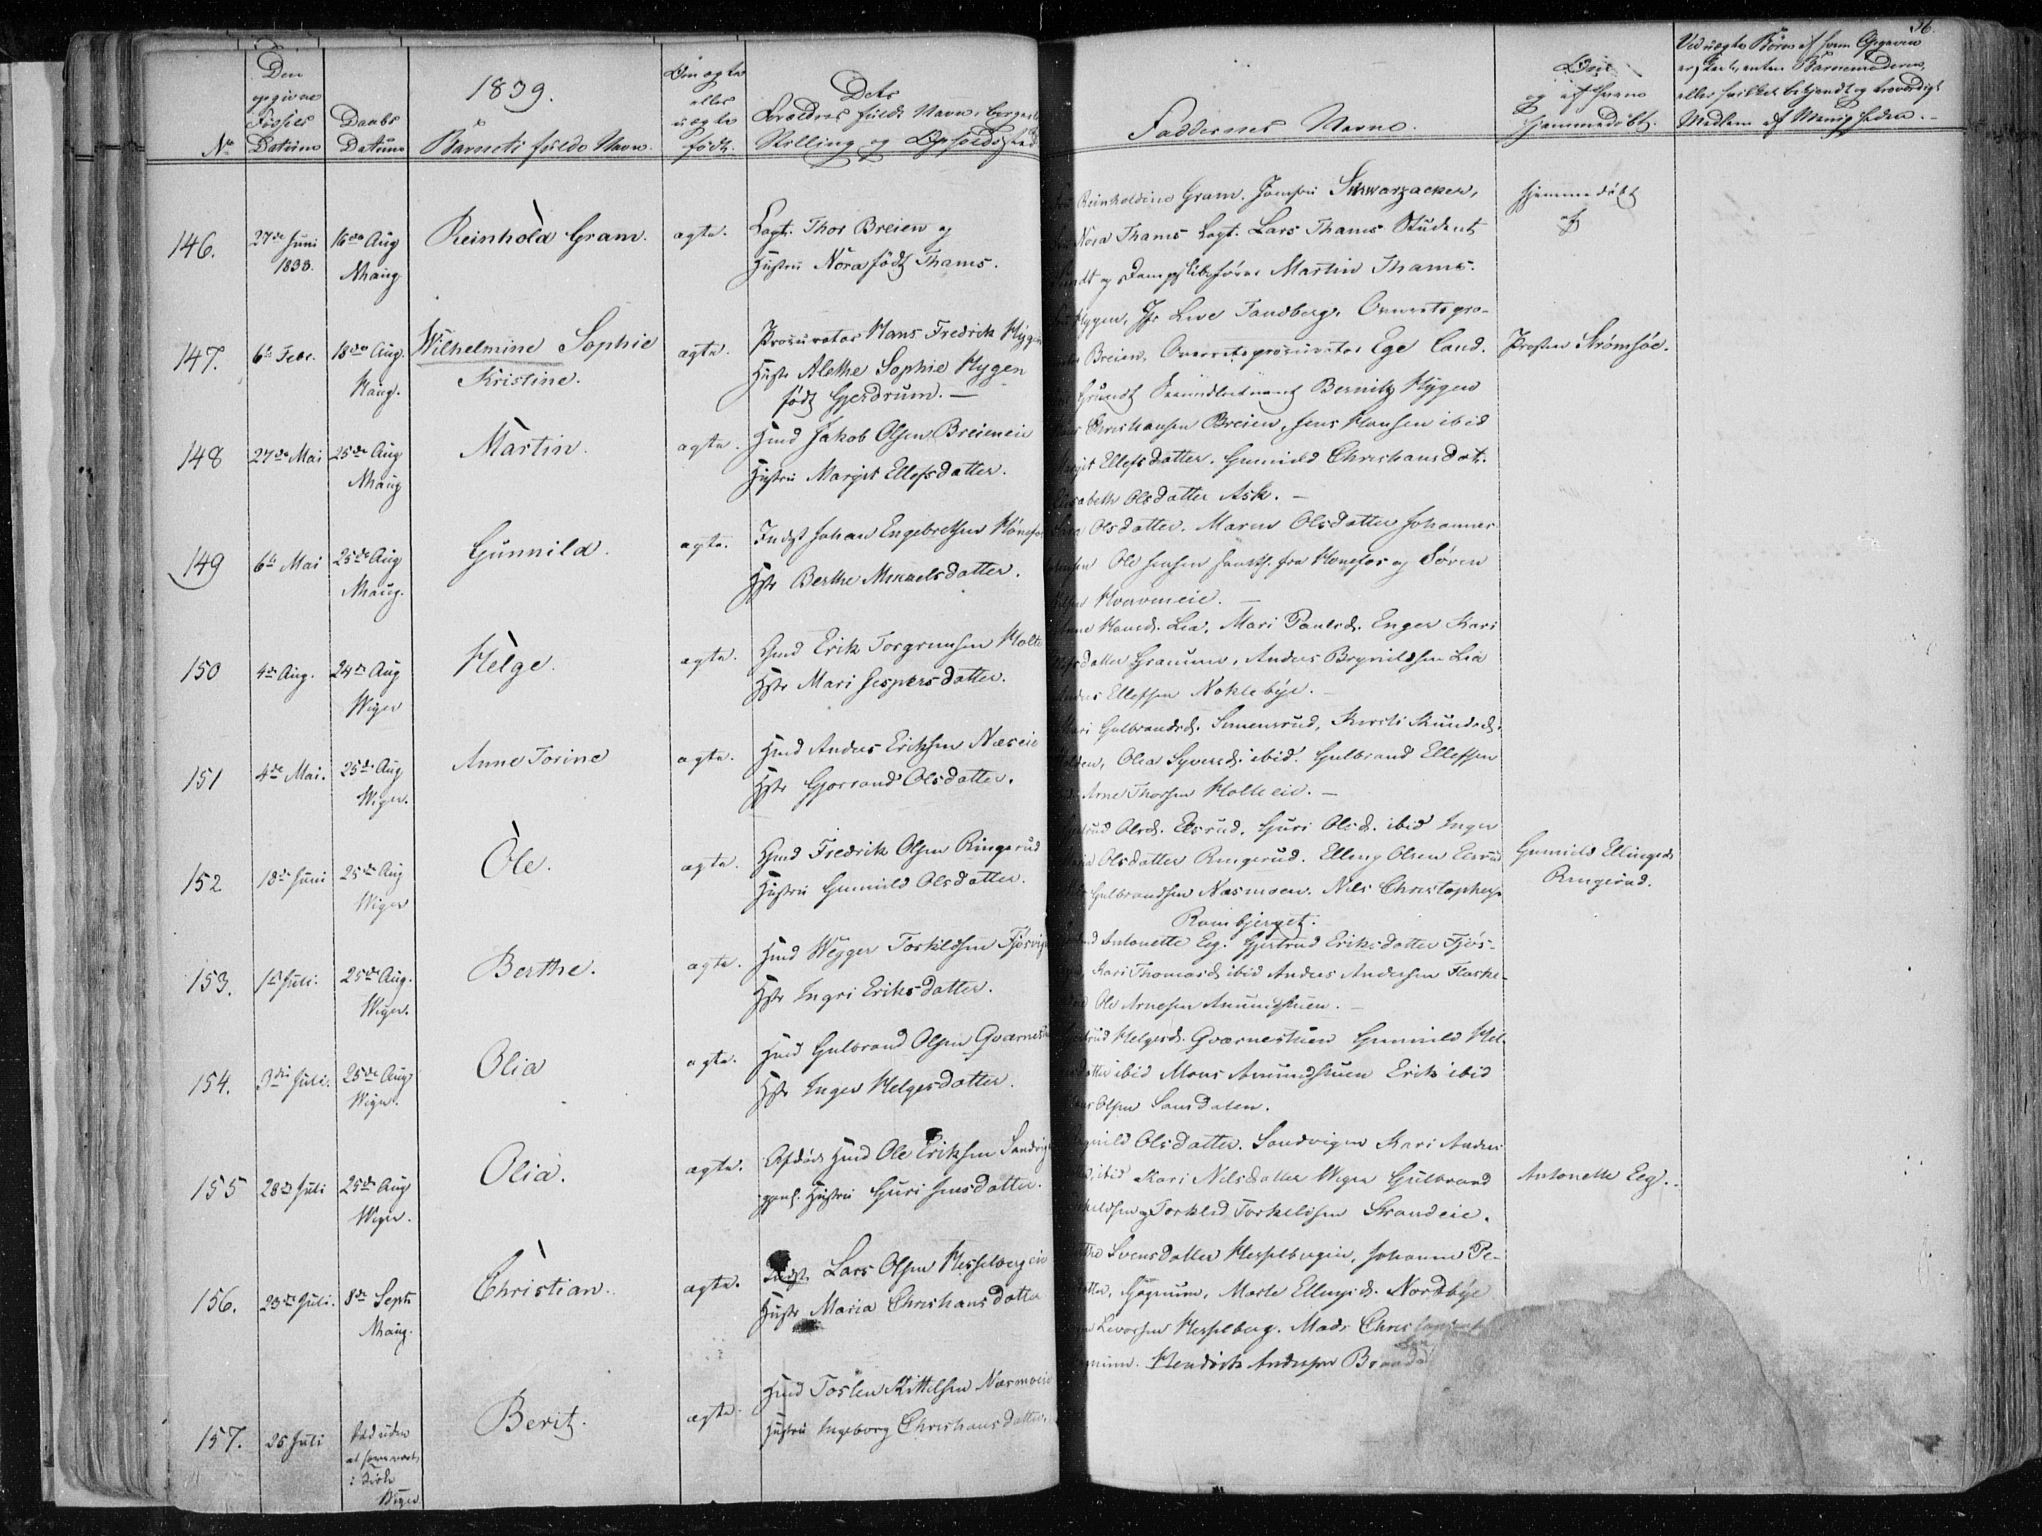 36.
Den opgivne Fødsels Datum
Daabs Datum
1839.
Barnets fulde Navn.
Om ægte eller uægte født.
Dets Forældres fulde Navn, borgerl. Stilling og Opholdssted
Faddernes Navne.
Om og af hvem hjemmedøbt.
Ved uægte Børn af hvem Opgaven er skeet, enten Barnemoderen, eller hvilket bekjendt og troværdigt Medlem af Menigheden.
No
146.
27de Juni 1838.
18de Aug Nhaug
Reinhold Gram.
ægte.
Logt. Thor Breien og
Hustru Nora født Thams.
Reinholdine Gram. Jomfru Schwarzacker,
Nora Thams Logt. Lars Thams Student
og Dampskibsfører Martin Thams.
hjemmedøbt
af
147.
6te Febr.
18de Aug. Nhaug.
Wilhelmine Sophie
Kristine.
ægte.
Procurator Hans Fredrik Hygen
Hustr Alethe Sophie Hygen
født Gjerdrum. —
Hygen, Jfr Live Tandberg, Overretspro-
Breien, Overretsprocurator Ege Cand.
Grundt Secondlieutenant Bernt Hygen
Provsten Strømsøe.
148
27de Mai
25de Aug Nhaug
Martin.
ægte.
Hmd Jakob Olsen Breieneie
Hustru Margit Ellefsdatter.
Christiansen Breien, Jens Hansen ibid
Margit Ellefsdatter. Gunnild Christiansdat.
Elisabeth Olsdatter Ask. —
149
6te Mai
25de Aug Nhaug.
Gunnild.
ægte.
Indst Johan Engebretsen Hønefos
Hstr Berthe Mikaelsdatter.
Olsdatter. Maren Olsdatter Johannes
Ole Jensen fra Hønefos og Søren
Hvervneneie. —
150
4de Aug.
24de Aug Viger
Helge.
ægte.
Gmd Erik Torgrimsen Holte
Hstr Mari Jespersdatter.
Anne Hansd. Lia, Mari Paulsd. Enger Kari
Ellefsdatter Granum, Anders Brynildsen Lia
Anders Ellefsen Noklebye. —
151
4de Mai.
25de Aug Viger.
Anne Torine
ægte.
Hmd Anders Eriksen Næseie
Hstr Gjorrand Olsdatter.
Kari Gulbrandsd. Semensrud, Kirsti Knudsd.
Holden, Olea Syversd. ibid. Gulbrand Ellefsen
Arne Thorsen Holteeie. —
152
18de Juni
25de Aug Viger
Ole.
ægte.
Gmd Fredrik Olsen Ringerud
Hustru Gunnild Olsdatter.
Olsd. Elsrud, Guri Olsd. ibid Inger
Maria Olsdatter Ringerud. Elling Olsen Elsrud
Gulbrandsen Næsmoen. Nils Christophersen
Rambjerget.
Gunnild Ellingsd.
Ringerud.
153.
1ste Juli.
25de Aug. Viger.
Berthe.
ægte.
Hmd Wegger Torkildsen Fjøsvig
Hstr Ingri Eriksdatter.
Antonette Eeg. Gjertrud Eriksdatter Fjøs-
Kari Thomasd. ibid Anders Andersen Flaske-
Ole Arnesen Amundstuen. —
154.
3die Juli.
25de Aug Viger.
Olia
ægte.
Hmd Gulbrand Olsen Qværnest
Hstr Inger Helgesdatter.
Helgesd. Qværnestuen Gunnild Hel-
datter ibid Mons Amundstuen Erik ibid
Olsen Sansdalen.
155
28de Juli
25de Aug Viger.
Olia.
ægte.
Afdøde Hmd Ole Eriksen Sandvig
Hustru Guri Jensdatter.
Ragnild Olsdatter Sandvigen Kari Anders
ibid Kari Nilsdatter Viger Gulbrand
og Torkild Torkeldsen Strandeie.
Antonette Eeg.
156.
23de Juli.
8de Septr Nhaug.
Christian.
ægte.
Indst. Lars Olsen Hesselbergeie
Hustr Maria Christiansdatter
Svensdatter Hesselbergeie, Johanne Pe-
datter, Hognum, Marte Ellingsd. Nordbye
Hesselberg. Mads Chris
Hendrik Andersen
157.
25 Juli
død uden at have været i Kirke Viger
Berit.
ægte.
Hmd Torsten Kittelsen Næsmoeie
Hustru Ingeborg Christiansdatter.